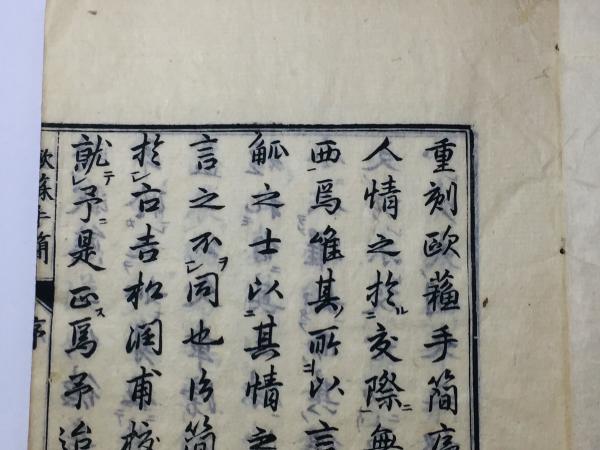 重刻歐蘓手簡序
人情之於交際無
西焉唯其所以言
觚之士以其情之
言之不同也後簡
於古吉松潤甫校
就予是正焉予治
歐蘓手簡 序